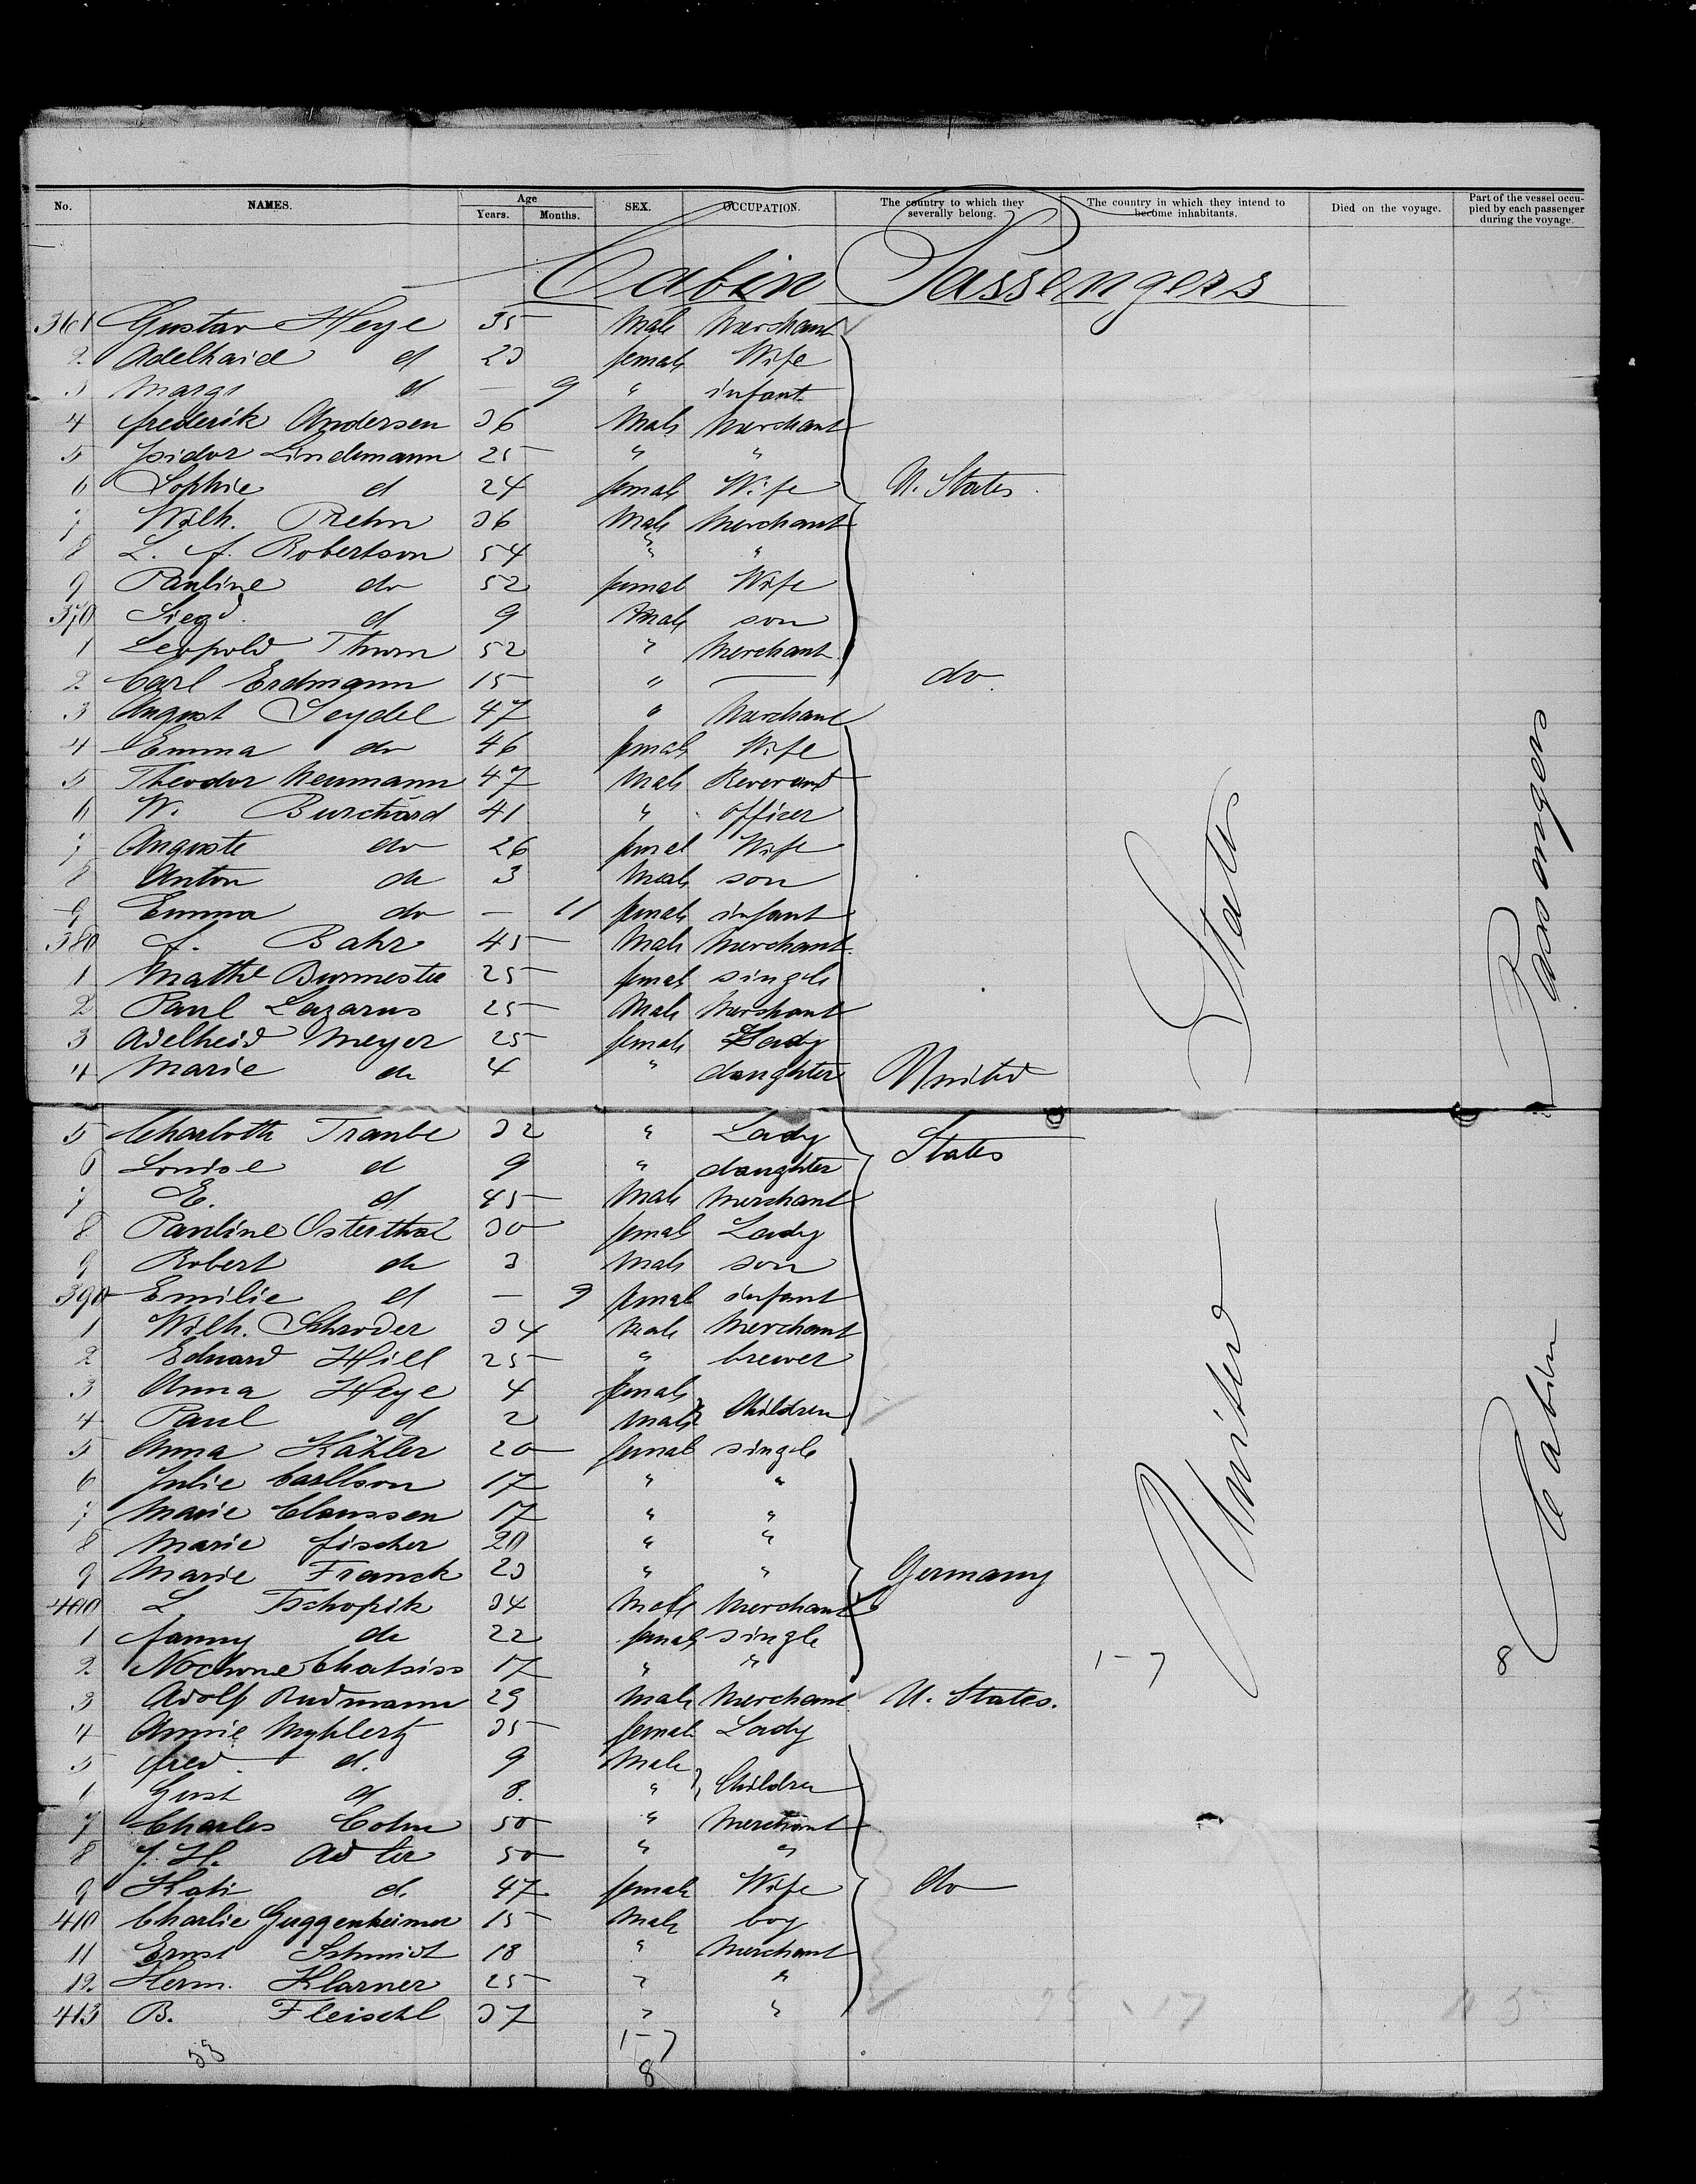 No. NAMES. Age Years. Months. SEX. OCCUPATION. The country to which they severally belong. The country in which they intend to become inhabitants. Died on the voyage. Part of the vessel occupied by each passenger during the voyage.
Cabin Passengers
361 Gustav Heye 35 Male Merchant
2 Adelhaid d 23 female Wife
3 Marg d — 9 " infant
4 frederik Andersen 36 Male Merchant
5 Isidor Lindemann 25 " "
6 Sophie d 24 female Wife U. States.
7 Wilh. Prehn 36 Male Merchant
8 L. f. Robertson 54 " "
9 Pauline do 52 female Wife
370 Siegd. d 9 Male son
1 Leopold Thurn 52 " Merchant
2 Carl Erdmann 15 " — do.
3 August Seydel 47 " Merchant
4 Emma do 46 female Wife
5 Theodor Neumann 47 Male Reverand
6 W. Burchard 41 " officer
7 Auguste do 26 femal Wife
8 Anton do 3 Male son
9 Emma do — 11 female infant
380 f. Bahr 45 Male Merchant
1 Mathe Burmester 25 femal single
2 Paul Lazarus 25 Male Merchant
3 Adelheid Meyer 25 female Lady
4 Marie do 4 " daughter United
5 Charlotte Traube 32 " Lady States
6 Louise d 9 " daughter
7 E. d 45 Male Merchant
8 Pauline Osterthal 30 female Lady
9 Robert do 3 Male son
390 Emilie d — 9 femal infant
1 Wilh. Schroder 34 Male Merchant
2 Eduard Hill 25 " brewer
3 Anna Heye 4 female Children
4 Paul d 2 Male
5 Anna Kähler 20 femal single
6 Julie Carllson 17 " "
7 Marie Claussen 17 " "
8 Marie fischer 20 " "
9 Marie Franck 23 " " Germany
400 L Tschopik 34 Male Merchant
1 fanny do 22 female single
2 17 " "
3 Adolf Rudmann 29 Male Merchant U. States.
4 Annie 35 female Lady
5 fred. d. 9 Male Children
6 Gust d 8. "
7 Charles Cohn 50 " Merchant
8 J. H. Adler 50 " "
9 Kati d. 47 female Wife do
410 Charlie Guggenheimer 15 Male boy
11 Ernst Schmidt 18 " Merchant
12 Herm. Klarner 25 " "
413 B. Fleischl 37 " "
53 1-7
8
United States
1-7
Cabin Passengers
8